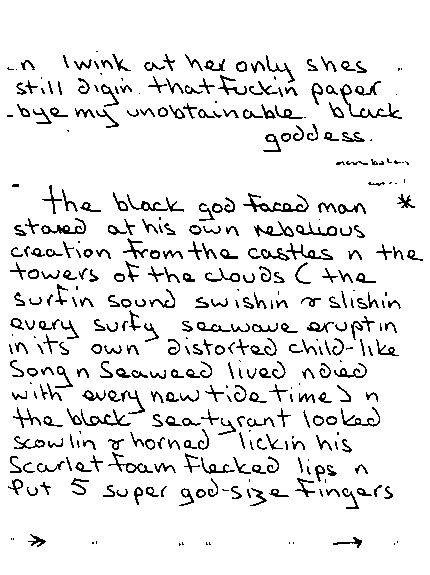 n I wink at her only shes
still digin that fuckin paper
bye my unobtainable black
goddess.
the black god faced man *
stared at his own rebelious
creation from the castles n the
towers of the clouds ( the
surfin sound swishin & slishin
every surfy seawave eruptin
in its own distorted child-like
Song n Seaweed lived n died
with every new tide time ) n
the black sea tyrant looked
scowlin & horned lickin his
Scarlet foam flecked lips n
Put 5 super god-size fingers